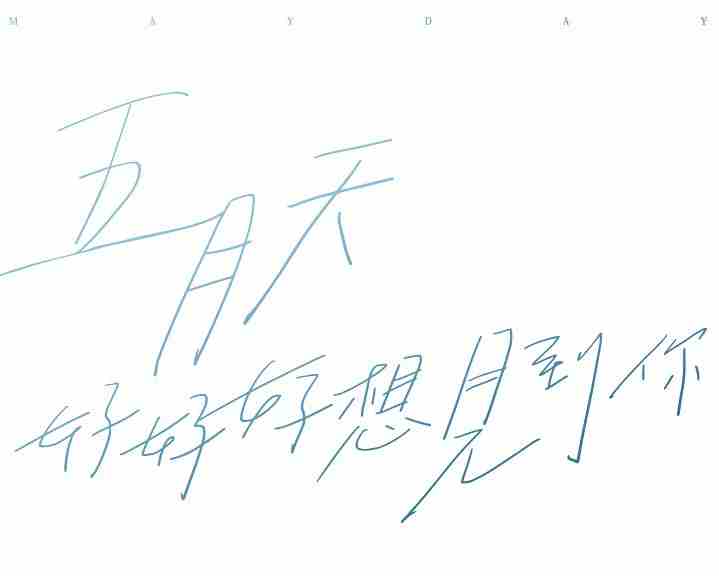 MAYDAY
五月天
好好好想見到你